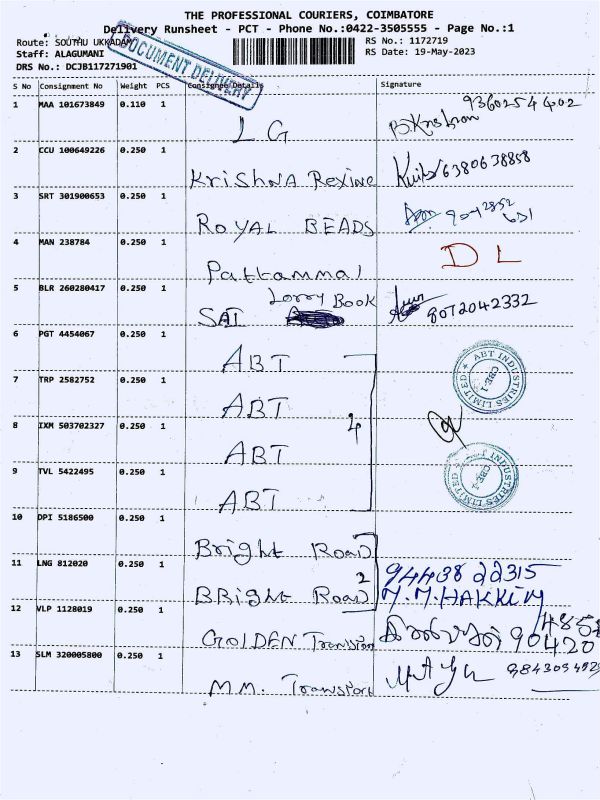 THE PROFESSIONAL COURIERS, COIMBATORE
Delivery Runsheet - PCT - Phone No.:0422-3505555 - Page No.:1
Route: SOUTHU UKKADAM
RS No.: 1172719
Staff: ALAGUMANI
RS Date: 19-May-2023
DRS No.: DCJB117271901
DOCUMENT DELIVERY
S No Consignment No Weight PCS Consignee Details Signature
1 MAA 101673849 0.110 1 LG B.Krishnan 9360254402
2 CCU 100649226 0.250 1 Krishna Rexine 6380638858
3 SRT 301900653 0.250 1 ROYAL BEADS 9042852651
4 MAN 238784 0.250 1 Pattammal DL
5 BLR 260280417 0.250 1 SAI Lorry Book 8072042332
6 PGT 4454067 0.250 1 ABT
7 TRP 2582752 0.250 1 ABT
8 IXM 503702327 0.250 1 ABT
9 TVL 5422495 0.250 1 ABT
4
ABT INDUSTRIES LIMITED CBE-1
INDUSTRIES LIMITED CBE-1
10 DPI 5186500 0.250 1 Bright Road
11 LNG 812020 0.250 1 BRight Road 2 9443822315
M.M.HAKKIM
12 VLP 1128019 0.250 1 GOLDEN Transport 90420
13 SLM 320005800 0.250 1 M.M. Transport